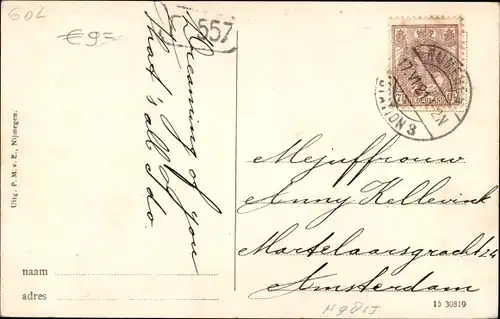 GDL
€9=
557
Dreaming of you
that's all I do.
Uitg. P. M. v. E., Nijmegen.
naam
adres
STATION 3
Mejuffrouw
Anny Kellevink
Martelaarsgracht 24
Amsterdam
15 30819